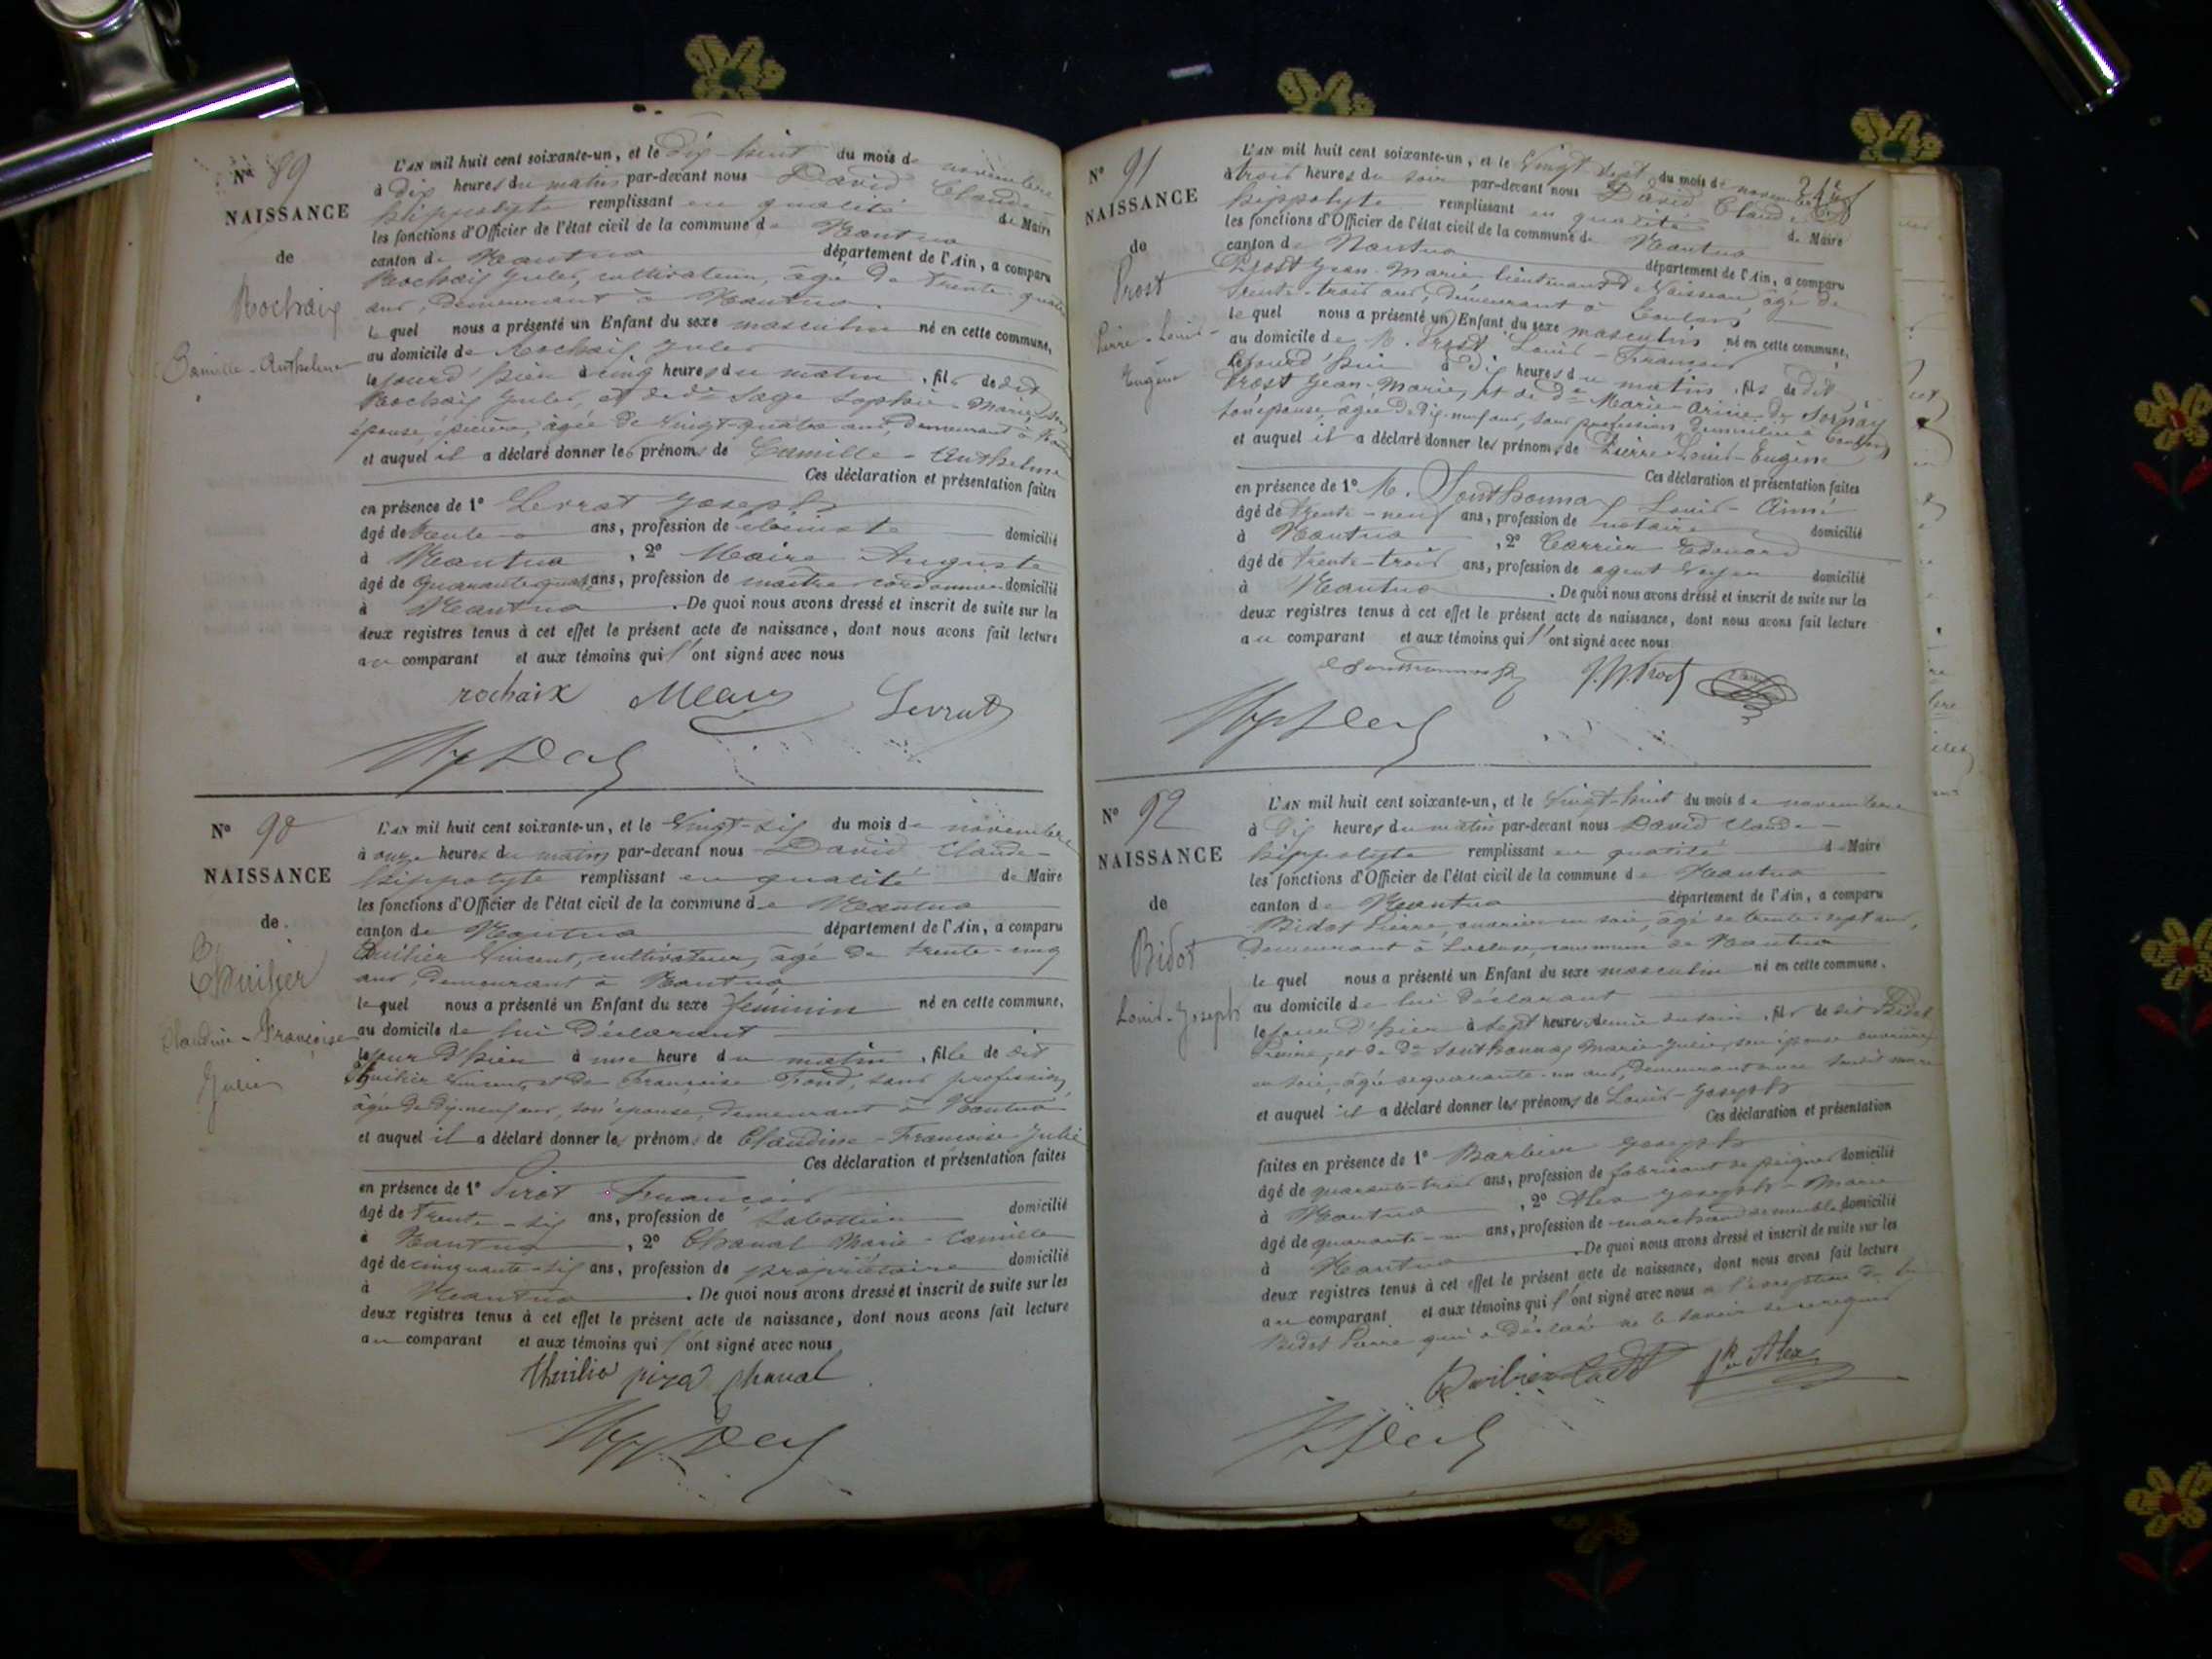 Nº 89
NAISSANCE
de
Rochaix
Camille-Anthelme
L'AN mil huit cent soixante-un, et le dix-huit du mois de novembre
à dix heures du matin par-devant nous David Claude-
hippolyte remplissant en qualité de Maire
les fonctions d'Officier de l'état civil de la commune de Nantua
canton de Nantua département de l'Ain, a comparu
Rochaix Jules, cultivateur, âgé de trente-quatre
ans, demeurant à Nantua
lequel nous a présenté un Enfant du sexe masculin né en cette commune,
au domicile de Rochaix Jules
le jour d'hier à cinq heures du matin, fils de dit
Rochaix Jules, et de de Sage Sophie-Marie, son
épouse, épicière, âgée de vingt-quatre ans, demeurant à
et auquel il a déclaré donner les prénoms de Camille-Anthelme
Ces déclaration et présentation faites
en présence de 1º Levrat Joseph
âgé de trente ans, profession de domicilié
à Nantua, 2º Maire Auguste
âgé de quarante quatre ans, profession de maître cordonnier domicilié
à Nantua. De quoi nous avons dressé et inscrit de suite sur les
deux registres tenus à cet effet le présent acte de naissance, dont nous avons fait lecture
au comparant et aux témoins qui l'ont signé avec nous
rochaix Levrat
Nº 90
NAISSANCE
de
Thuilier
Claudine-Françoise
Julie
L'AN mil huit cent soixante-un, et le vingt-six du mois de novembre
à onze heures du matin par-devant nous David Claude-
hippolyte remplissant en qualité de Maire
les fonctions d'Officier de l'état civil de la commune de Nantua
canton de Nantua département de l'Ain, a comparu
Thuilier Vincent, cultivateur, âgé de trente-cinq
ans, demeurant à Nantua
lequel nous a présenté un Enfant du sexe féminin né en cette commune,
au domicile de lui déclarant
le jour d'hier à une heure du matin, fille de dit
Thuilier Vincent, et de Françoise Fond, sans profession,
âgée de dix-neuf ans, son épouse, demeurant à Nantua
et auquel il a déclaré donner les prénoms de Claudine-Françoise-Julie
Ces déclaration et présentation faites
en présence de 1º Pirat François
âgé de trente-six ans, profession de sabottier domicilié
à Nantua, 2º Chanal Marie-Camille
âgé de cinquante-six ans, profession de propriétaire domicilié
à Nantua. De quoi nous avons dressé et inscrit de suite sur les
deux registres tenus à cet effet le présent acte de naissance, dont nous avons fait lecture
au comparant et aux témoins qui l'ont signé avec nous
Chanal
Nº 91
NAISSANCE
de
Prost
Pierre-Louis-
Eugène
L'AN mil huit cent soixante-un, et le vingt-sept du mois de novembre
à trois heures du soir par-devant nous David Claude
hippolyte remplissant en qualité de Maire
les fonctions d'Officier de l'état civil de la commune de Nantua
canton de Nantua département de l'Ain, a comparu
Prost Jean-Marie, lieutenant de vaisseau, âgé de
trente-trois ans, demeurant à Toulon
lequel nous a présenté un Enfant du sexe masculin né en cette commune,
au domicile de M. Prost Louis-François
le jour d'hui à dix heures du matin, fils de dit
Prost Jean-Marie, et de de Marie de Sornay
son épouse, âgée de dix-neuf ans, sans profession, domiciliée à Toulon
et auquel il a déclaré donner les prénoms de Pierre-Louis-Eugène
Ces déclaration et présentation faites
en présence de 1º M. Southonnax Louis-Aimé
âgé de trente-neuf ans, profession de notaire domicilié
à Nantua, 2º Carrier Edouard
âgé de trente-trois ans, profession de agent voyer domicilié
à Nantua. De quoi nous avons dressé et inscrit de suite sur les
deux registres tenus à cet effet le présent acte de naissance, dont nous avons fait lecture
au comparant et aux témoins qui l'ont signé avec nous
J. M. Prost
Nº 92
NAISSANCE
de
Bidot
Louis-Joseph
L'AN mil huit cent soixante-un, et le vingt-huit du mois de novembre
à dix heures du matin par-devant nous David Claude-
hippolyte remplissant en qualité de Maire
les fonctions d'Officier de l'état civil de la commune de Nantua
canton de Nantua département de l'Ain, a comparu
Bidot Pierre, ouvrier en soie, âgé de trente-sept ans,
demeurant à commune de Nantua
lequel nous a présenté un Enfant du sexe masculin né en cette commune.
au domicile de lui déclarant
le jour d'hier à sept heures demie du soir, fils de dit Bidot
Pierre, et de de Southonnax Marie-Julie, son épouse ouvrière
en soie, âgée de quarante-un ans, demeurant avec
et auquel il a déclaré donner les prénoms de Louis-Joseph
Ces déclaration et présentation
faites en présence de 1º Barbier Joseph
âgé de quarante-trois ans, profession de fabricant de peignes domicilié
à Nantua, 2º Alex Joseph-Marie
âgé de quarante-un ans, profession de marchand de meubles domicilié
à Nantua. De quoi nous avons dressé et inscrit de suite sur les
deux registres tenus à cet effet le présent acte de naissance, dont nous avons fait lecture
au comparant et aux témoins qui l'ont signé avec nous à l'exception de
Bidot Pierre qui a déclaré ne le savoir de ce requis
Barbier Cadet Alex